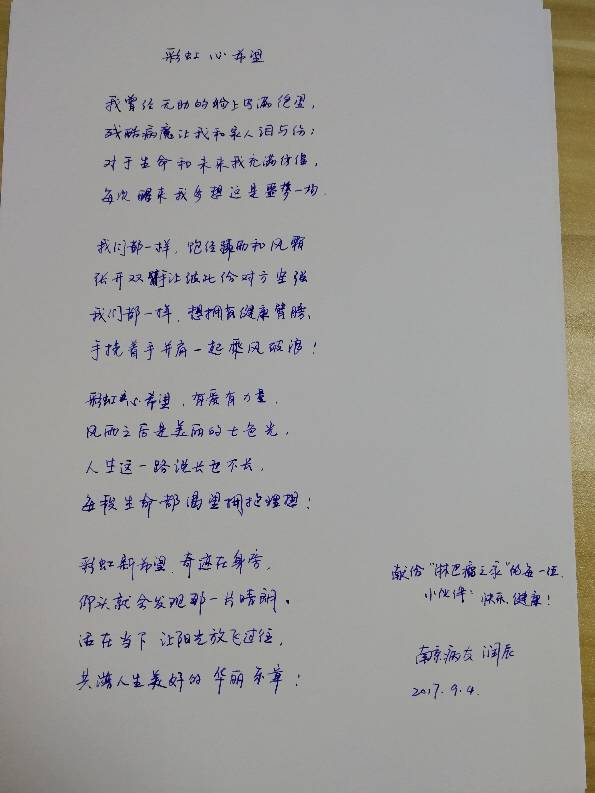 彩虹心希望
我曾经无助的脸上写满绝望，
残酷病魔让我和家人泪与伤；
对于生命和未来我充满彷徨，
每次醒来我多想这是噩梦一场.
我们都一样，饱经和风霜
张开双臂让彼此给对方坚强
我们都一样，想拥有健康臂膀、
手挽着手并肩一起乘风破浪！
彩虹心希望，有爱有力量，
风雨之后是美丽的七色光，
人生这一路说长也不长，
每段生命都渴望拥抱理想！
彩虹新希望，奇迹在身旁，
仰头就会发现那一片晴朗。
活在当下 让阳光放飞过往，
共谱人生美好的 华丽乐章！
献给“淋巴瘤之家”的每一位
小伙伴：快乐、健康！
南京病友 润辰
2017.9.4.